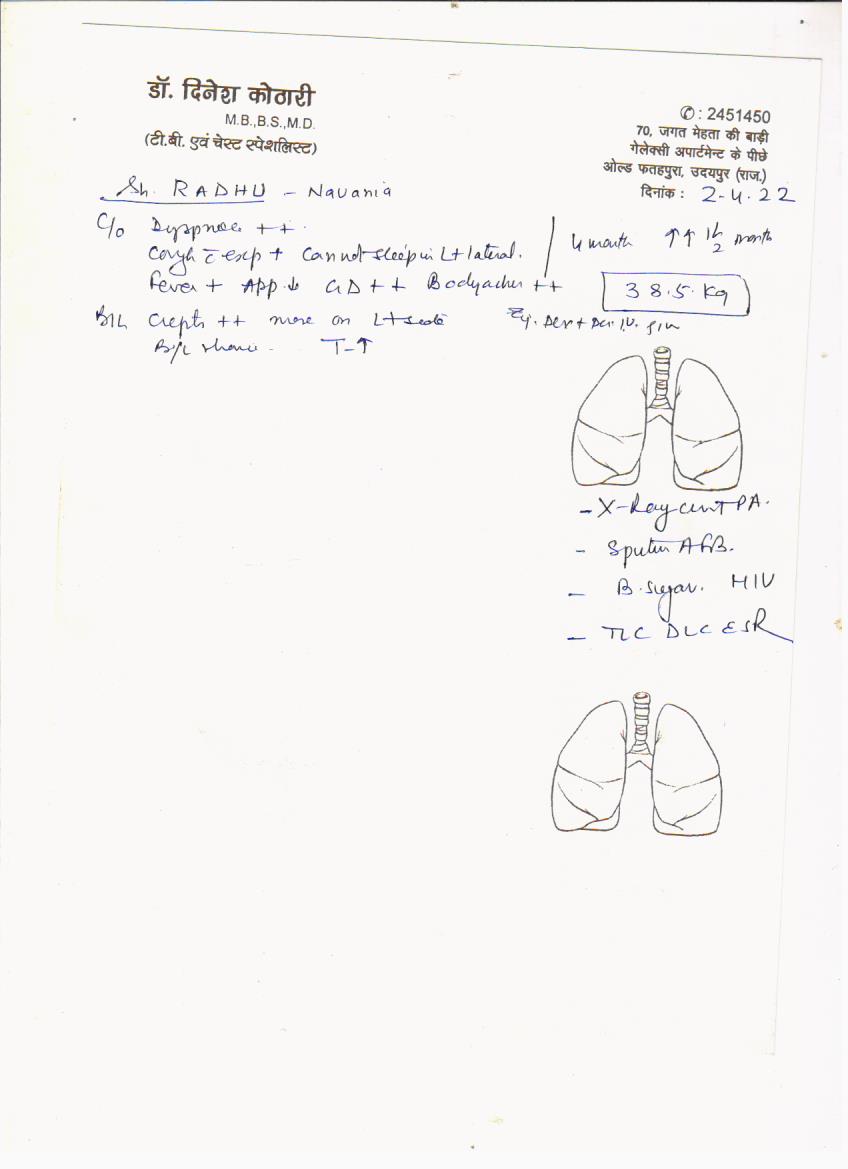 डॉ. दिनेश कोठारी
M.B.,B.S.,M.D.
(टी.बी. एवं चेस्ट स्पेशलिस्ट)
✆: 2451450
70, जगत मेहता की बाड़ी
गेलेक्सी अपार्टमेन्ट के पीछे
ओल्ड फतहपुरा, उदयपुर (राज.)
दिनांक : 2-4.22
Sh. RADHU - Navania
C/o Dyspnoea ++
Cough c̄ exp + Cannot sleep in Lt lateral.
Fever + App ↓ GD ++ Bodyaches ++
4 month ↑↑ 1½ month
38.5 Kg
B/L Crepts ++ more on Lt side
B/L rhonchi T-↑
- X-Ray chest PA.
- Sputum AFB.
- B. sugar. HIV
- TLC DLC ESR